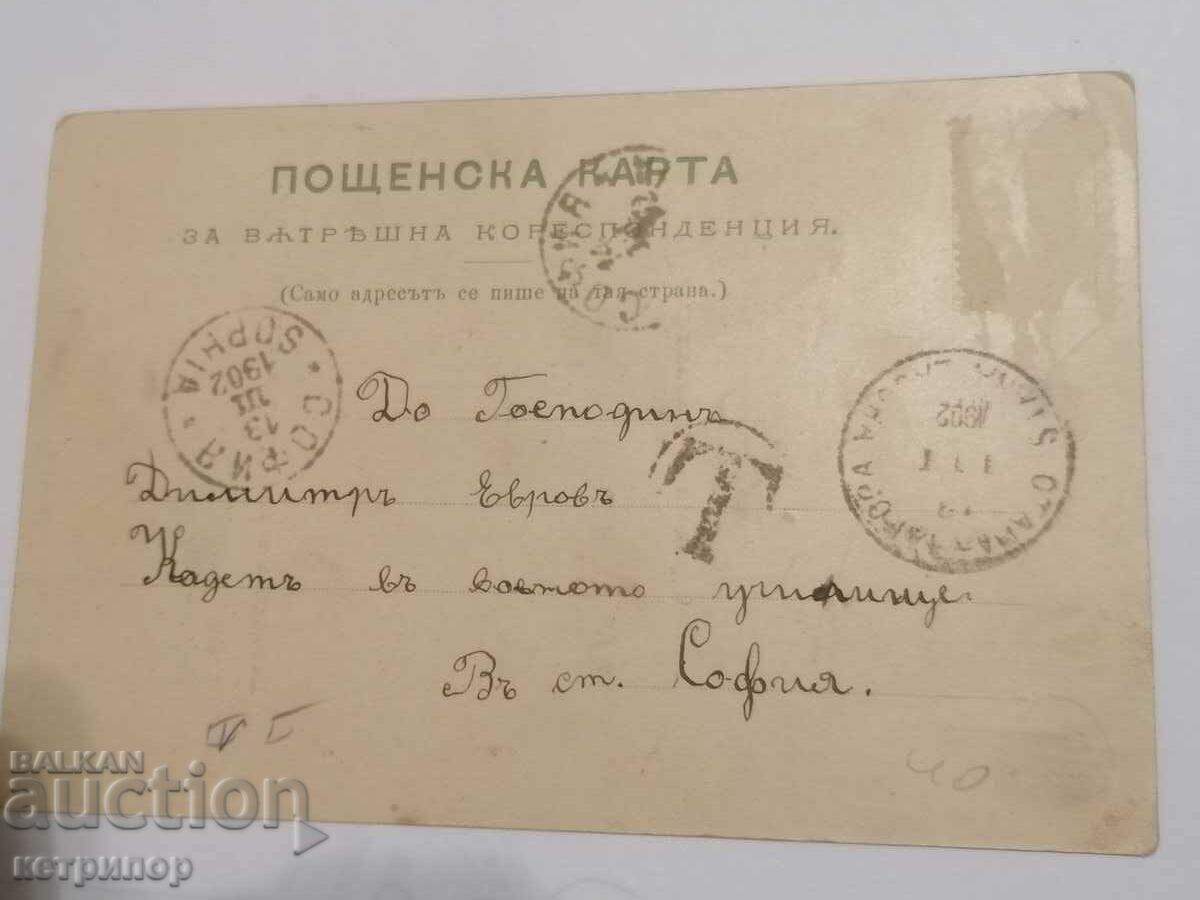 ПОЩЕНСКА КАРТА
ЗА ВѪТРѢШНА КОРЕСПОНДЕНЦИЯ.
(Само адресътъ се пише на тая страна.)
СОФИЯ
СОФИЯ • SOPHIA
13 III 1902
До Господинъ
Димитръ Евровъ
Т
СТАРА ЗАГОРА
1902
Кадетъ въ военното училище
Въ ст. София.
V Г
40
BALKAN
auction
кетрипор